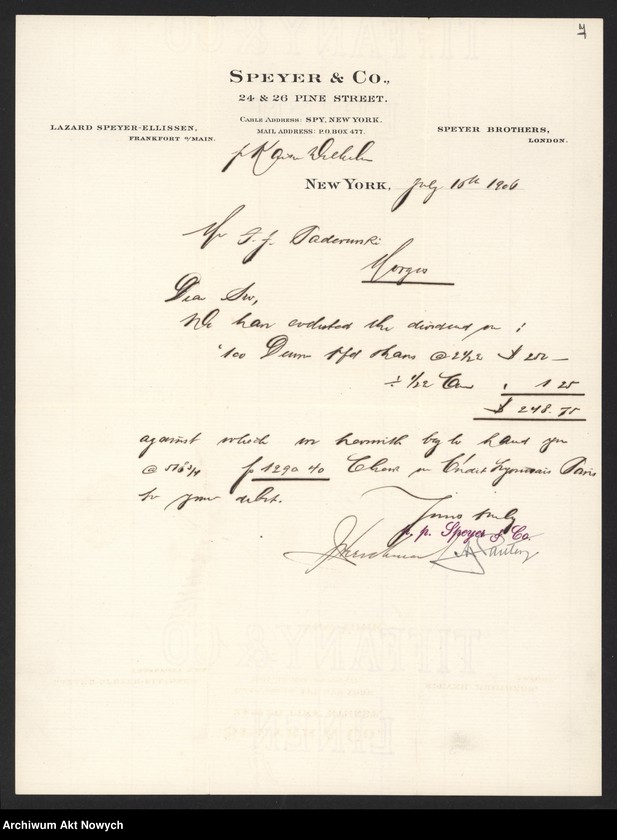 SPEYER & CO.,
24 & 26 PINE STREET.
CABLE ADDRESS: SPY, NEW YORK.
MAIL ADDRESS: P.O. BOX 477.
LAZARD SPEYER-ELLISSEN,
FRANKFORT o/MAIN.
SPEYER BROTHERS,
LONDON.
NEW YORK, July 10th 1906
Mr I. J. Paderewski
Morges
Dear Sir,
We have collected the dividend on :
100 pfd shares @ 2 1/2 $ 250 —
1 25
$ 248.75
against which we herewith beg to hand you
@ 516 3/4 fs 1290 40 Check on Crédit Lyonnais Paris
to your debit.
Yours truly
p. p. Speyer & Co.
TIFFANY & CO
LINEN
Archiwum Akt Nowych